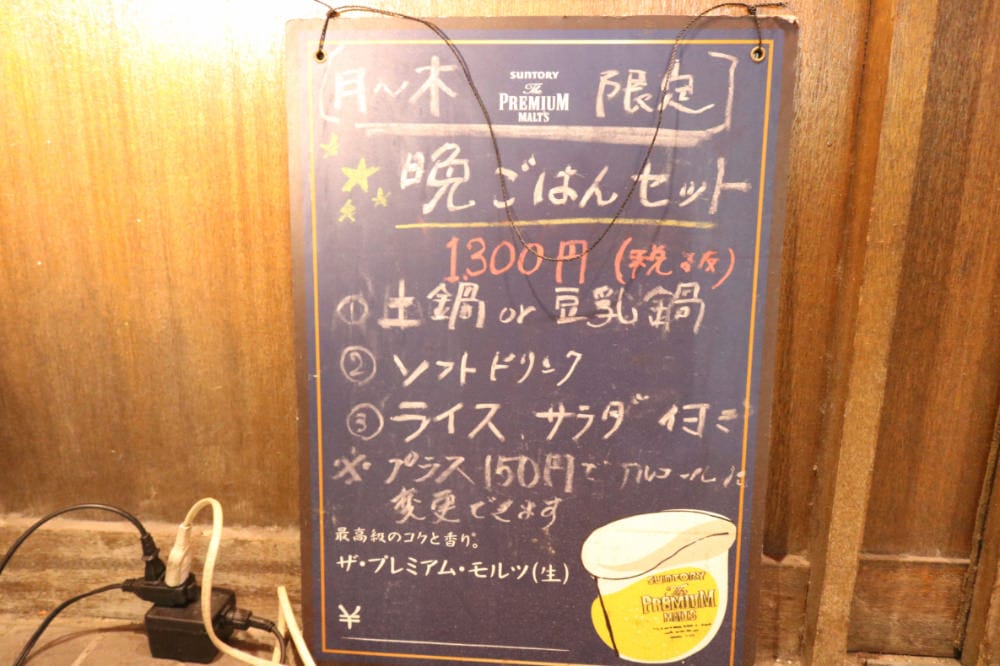 【月〜木 限定】
SUNTORY
The
PREMIUM
MALT'S
晩ごはんセット
1.300円 (税抜)
① 土鍋 or 豆乳鍋
② ソフトドリンク
③ ライス サラダ 付き
※ プラス150円でアルコールに
変更できます
最高級のコクと香り。
ザ・プレミアム・モルツ(生)
¥
SUNTORY
The
PREMIUM
MALT'S